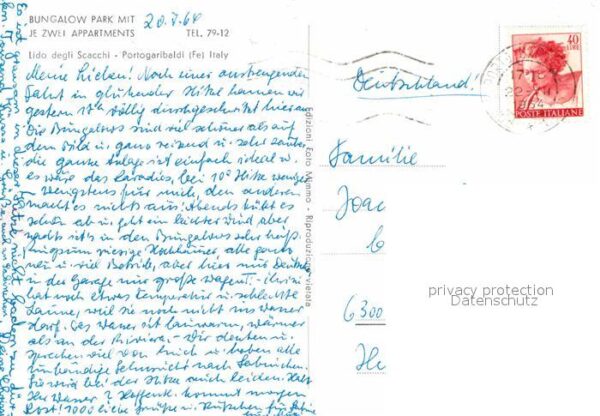 BUNGALOW PARK MIT
JE ZWEI APPARTMENTS TEL. 79-12
20.7.64
Lido degli Scacchi - Portogaribaldi (Fe) Italy
Meine Lieben! Noch einer anstrengenden
Fahrt in glühender Hitze kamen wir
gestern 17h völlig durchgeschwitzt hier an.
Die Bungalows sind viel schöner als auf
dem Bild u. ganz reizend u. sehr sauber,
die ganze Anlage ist einfach ideal u.
es wäre das Paradies, bei 10° Hitze weniger
- wenigstens für mich, den anderen
macht es nichts aus! Abends kühlt es
schön ab u. geht ein leichter Wind, aber
nachts ist's in den Bungalows sehr heiß.
Ringsum riesige Hochhäuser, alle ganz
neu u. viel Betrieb, aber hier nur Deutsche
in der Garage nur große Wagen!
hat noch etwas Temperatur u. schlechte
Laune, weil sie noch nicht ins Wasser
darf. Das Wasser ist lauwarm, wärmer
als an der Riviera. - Wir denken u.
sprechen viel von Euch u. haben alle
unbändige Sehnsucht nach Sabinchen.
bei der Hitze auch leiden.
Ihr Wasser? Hoffentl. kommt morgen
Post! 1000 liebe Grüße u. Küßchen für
Edizioni Foto Mimmo - Riproduzione vietata
Deutschland!
40
LIRE
POSTE ITALIANE
Familie
Joac
6300
privacy protection
Datenschutz